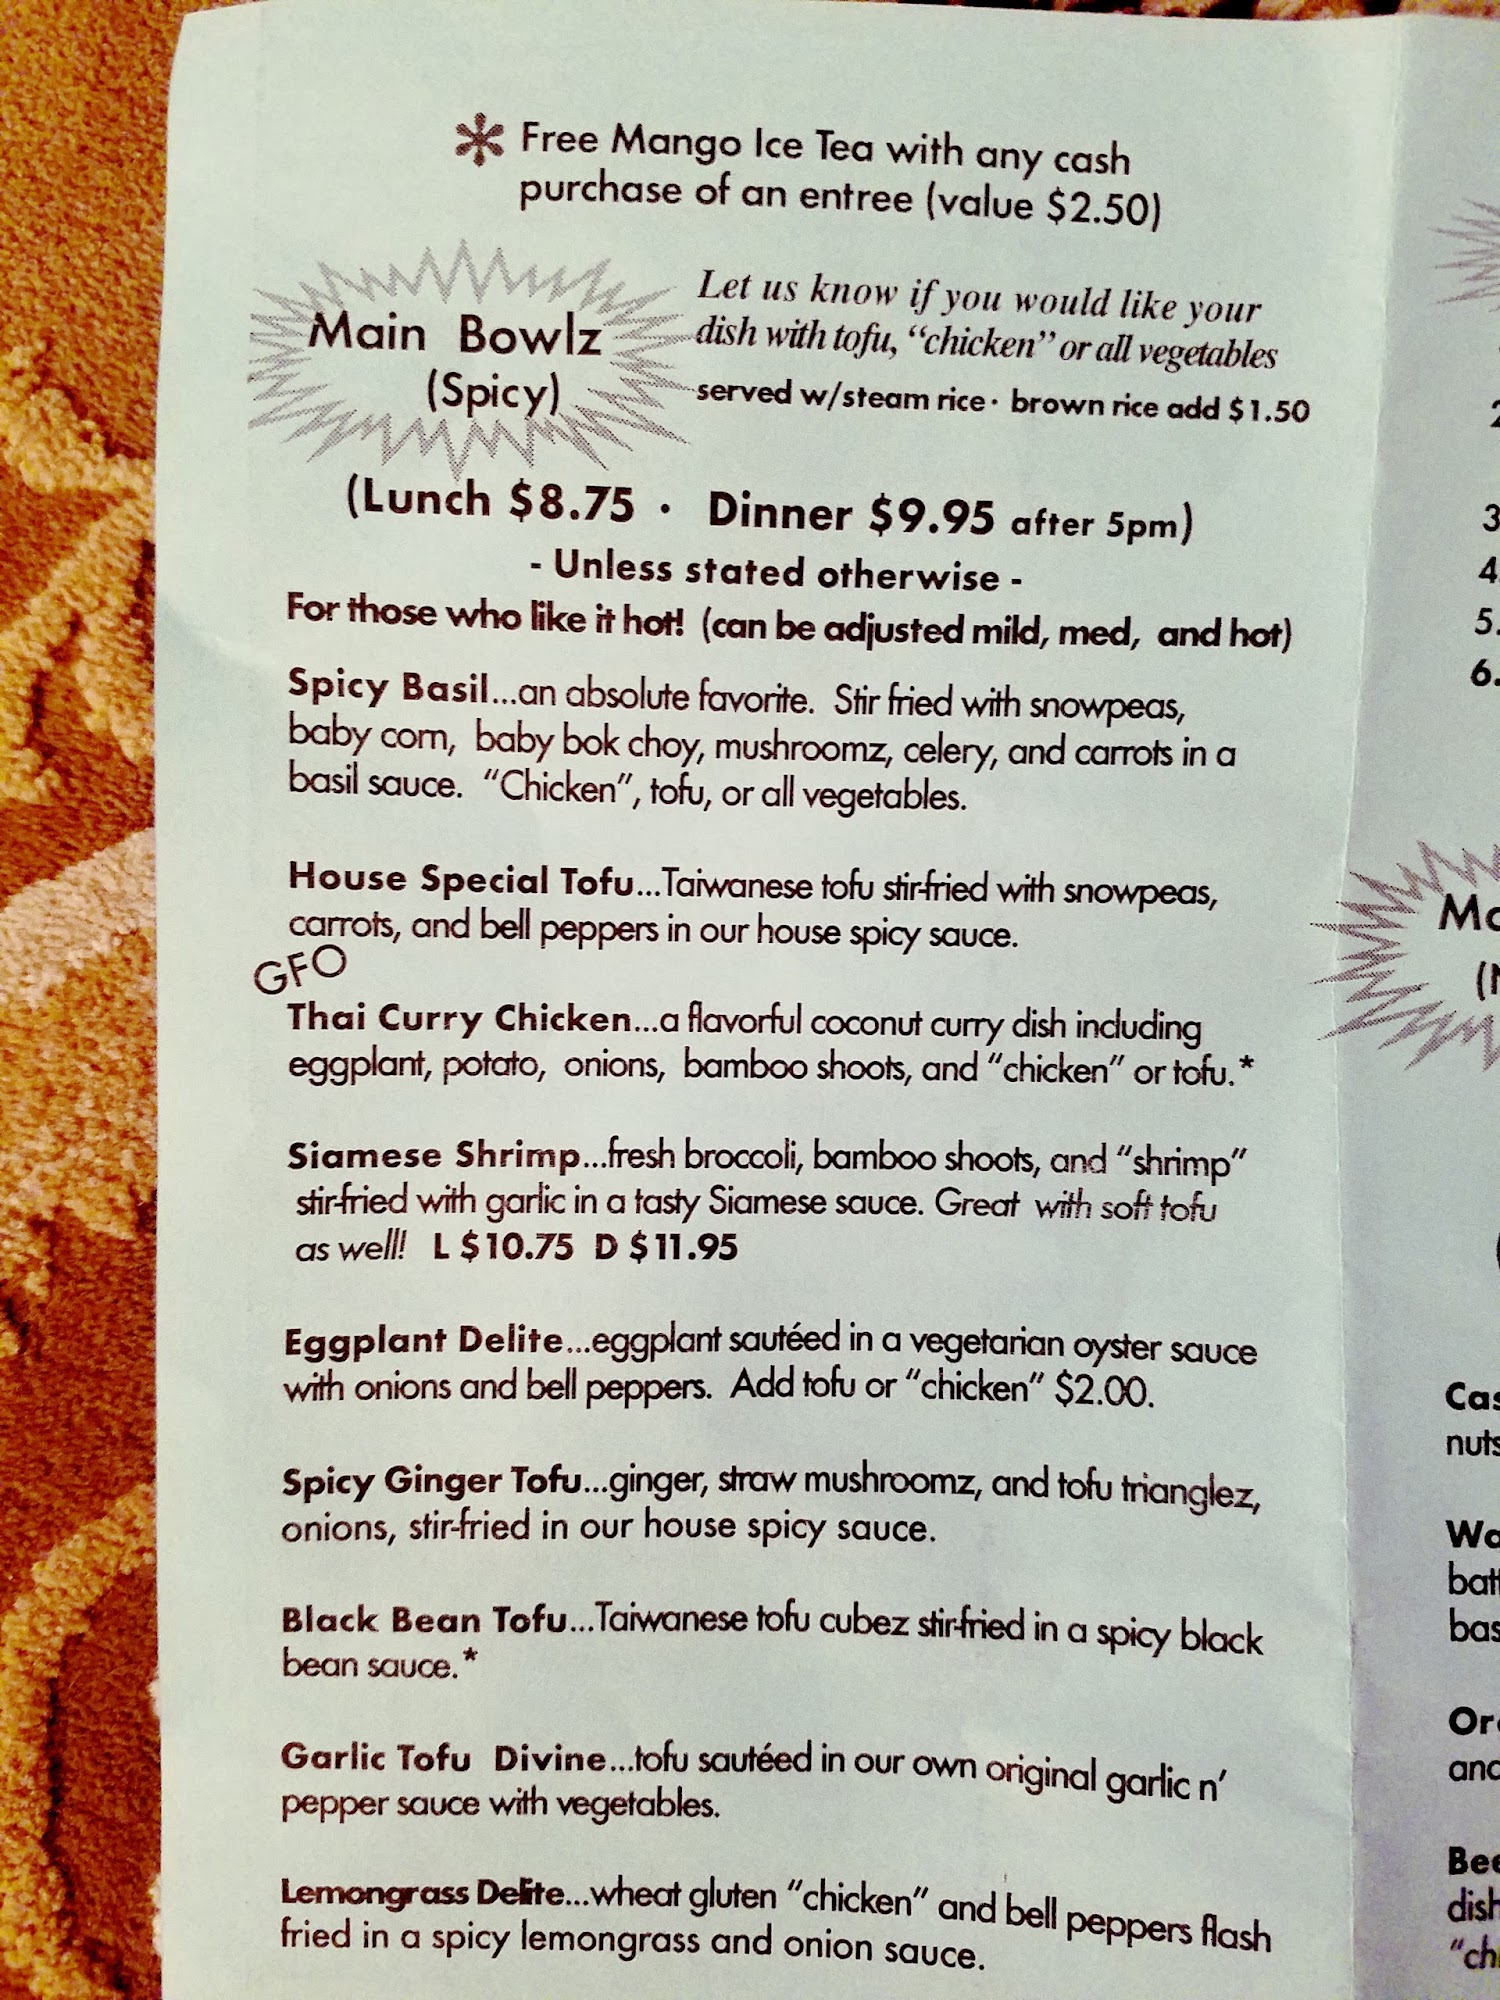 * Free Mango Ice Tea with any cash
purchase of an entree (value $2.50)
Main Bowlz
(Spicy)
Let us know if you would like your
dish with tofu, “chicken” or all vegetables
served w/steam rice · brown rice add $1.50
(Lunch $8.75 · Dinner $9.95 after 5pm)
- Unless stated otherwise -
For those who like it hot! (can be adjusted mild, med, and hot)
Spicy Basil...an absolute favorite. Stir fried with snowpeas,
baby corn, baby bok choy, mushroomz, celery, and carrots in a
basil sauce. “Chicken”, tofu, or all vegetables.
House Special Tofu...Taiwanese tofu stir-fried with snowpeas,
carrots, and bell peppers in our house spicy sauce.
GFO
Thai Curry Chicken...a flavorful coconut curry dish including
eggplant, potato, onions, bamboo shoots, and “chicken” or tofu.*
Siamese Shrimp...fresh broccoli, bamboo shoots, and “shrimp”
stir-fried with garlic in a tasty Siamese sauce. Great with soft tofu
as well! L $10.75 D $11.95
Eggplant Delite...eggplant sautéed in a vegetarian oyster sauce
with onions and bell peppers. Add tofu or “chicken” $2.00.
Spicy Ginger Tofu...ginger, straw mushroomz, and tofu trianglez,
onions, stir-fried in our house spicy sauce.
Black Bean Tofu...Taiwanese tofu cubez stir-fried in a spicy black
bean sauce.*
Garlic Tofu Divine...tofu sautéed in our own original garlic n’
pepper sauce with vegetables.
Lemongrass Delite...wheat gluten “chicken” and bell peppers flash
fried in a spicy lemongrass and onion sauce.
3
4.
5.
6.
nuts